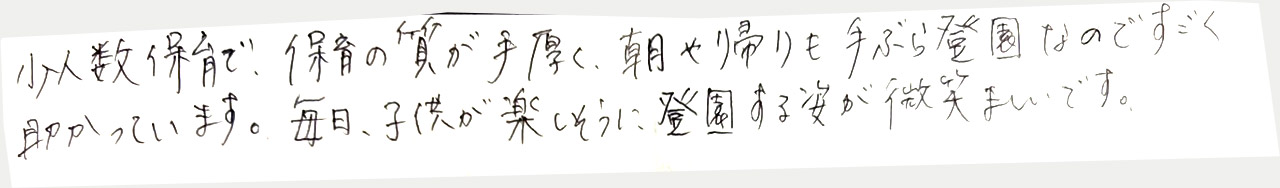 少人数保育で、保育の質が手厚く、朝や帰りも手ぶら登園なのですごく
助かっています。毎日、子供が楽しそうに登園する姿が微笑ましいです。